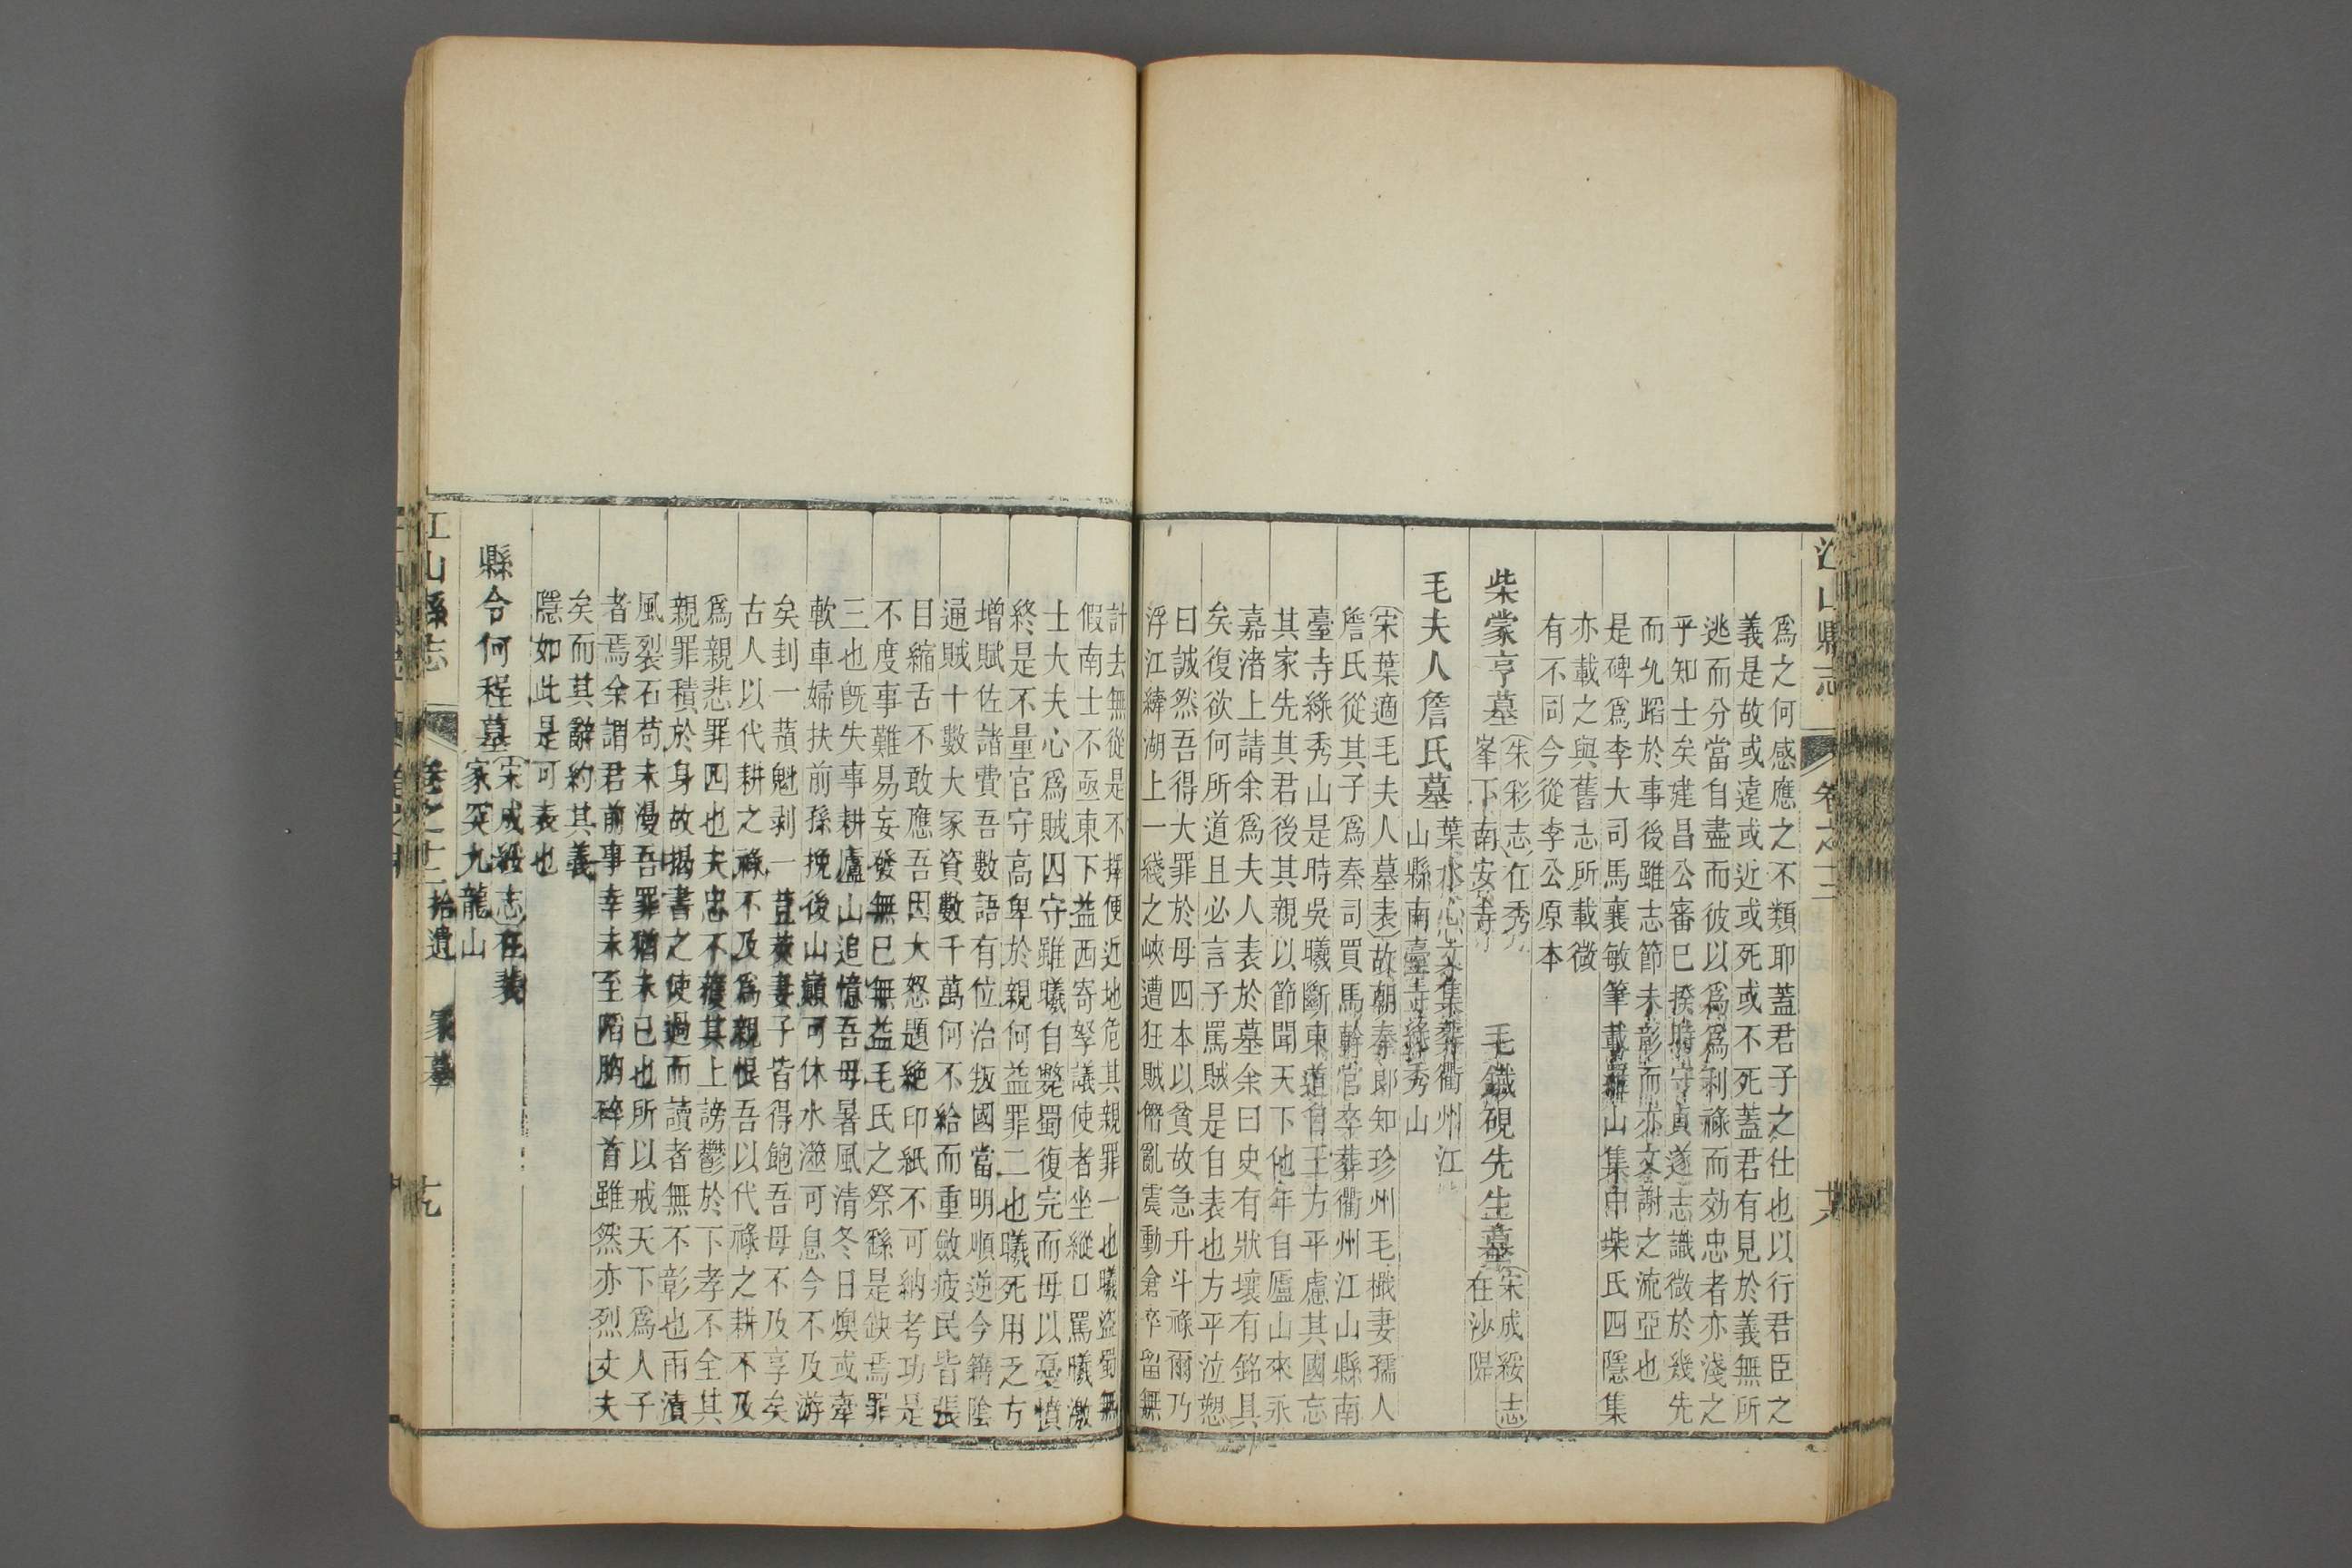 江山縣志 卷之十二 十八
爲之何感應之不類耶蓋君子之仕也以行君臣之
義是故或遠或近或死或不死蓋君有見於義無所
逃而分當自盡而彼以爲爲利祿而効忠者亦淺之
乎知士矣建昌公審巳揆時守貞遂志識微於幾先
而允蹈於事後雖志節未彰而亦文謝之流亞也
是碑爲李大司馬襄敏筆載 山集中柴氏四隱集
亦載之與舊志所載微
有不同今從李公原本
柴蒙亨墓 朱彩志在秀
峯下南安寺
毛鐵硯先生墓 宋成綏志
在沙隄
毛夫人詹氏墓 葉水心文集葬衢州江
山縣南臺寺綠秀山
宋葉適毛夫人墓表故朝奉郎知珍州毛檝妻孺人
詹氏從其子爲秦司買馬幹官卒葬衢州江山縣南
臺寺綠秀山是時吳曦斷東道自王方平慮其國忘
其家先其君後其親以節聞天下他年自廬山來永
嘉渚上請余爲夫人表於墓余曰史有狀壙有銘具
矣復欲何所道且必言子罵賊是自表也方平泣愬
曰誠然吾得大罪於母四本以貧故急升斗祿爾乃
浮江縴湖上一綫之峽遭狂賊僭亂震動倉卒留無
計去無從是不擇便近地危其親罪一也曦盜蜀無
假南士不亟東下益西寄孥議使者坐縱口罵曦激
士大夫心爲賊囚守雖曦自斃蜀復完而母以憂憤
終是不量官守高卑於親何益罪二也曦死用乏方
增賦佐諸費吾數語有位治叛國當明順逆今籍陰
通賊十數大冢資數千萬何不給而重斂疲民皆張
目縮舌不敢應吾因大怒題絶印紙不可納考功是
不度事難易妄發無已無益毛氏之祭繇是缺焉罪
三也旣失事耕廬山追憶吾母暑風清冬日燠或牽
軟車婦扶前孫挽後山巔可休水澨可息今不及游
矣刲一蕷魁剥一 妻子皆得飽吾母不及享矣
古人以代耕之祿不及爲親恨吾以代祿之耕不及
爲親悲罪四也夫忠不獲其上謗鬱於下孝不全其
親罪積於身故揭書之使過而讀者無不彰也雨漬
風裂石苟未漫吾罪猶未已也所以戒天下爲人子
者焉余謂君前事幸未至陷胸碎首雖然亦烈丈夫
矣而其辭約其義
隱如此是可表也
縣令何程墓 宋成綏志在義
家突九龍山
江山縣志 卷之十二 拾遺 冢墓 十九